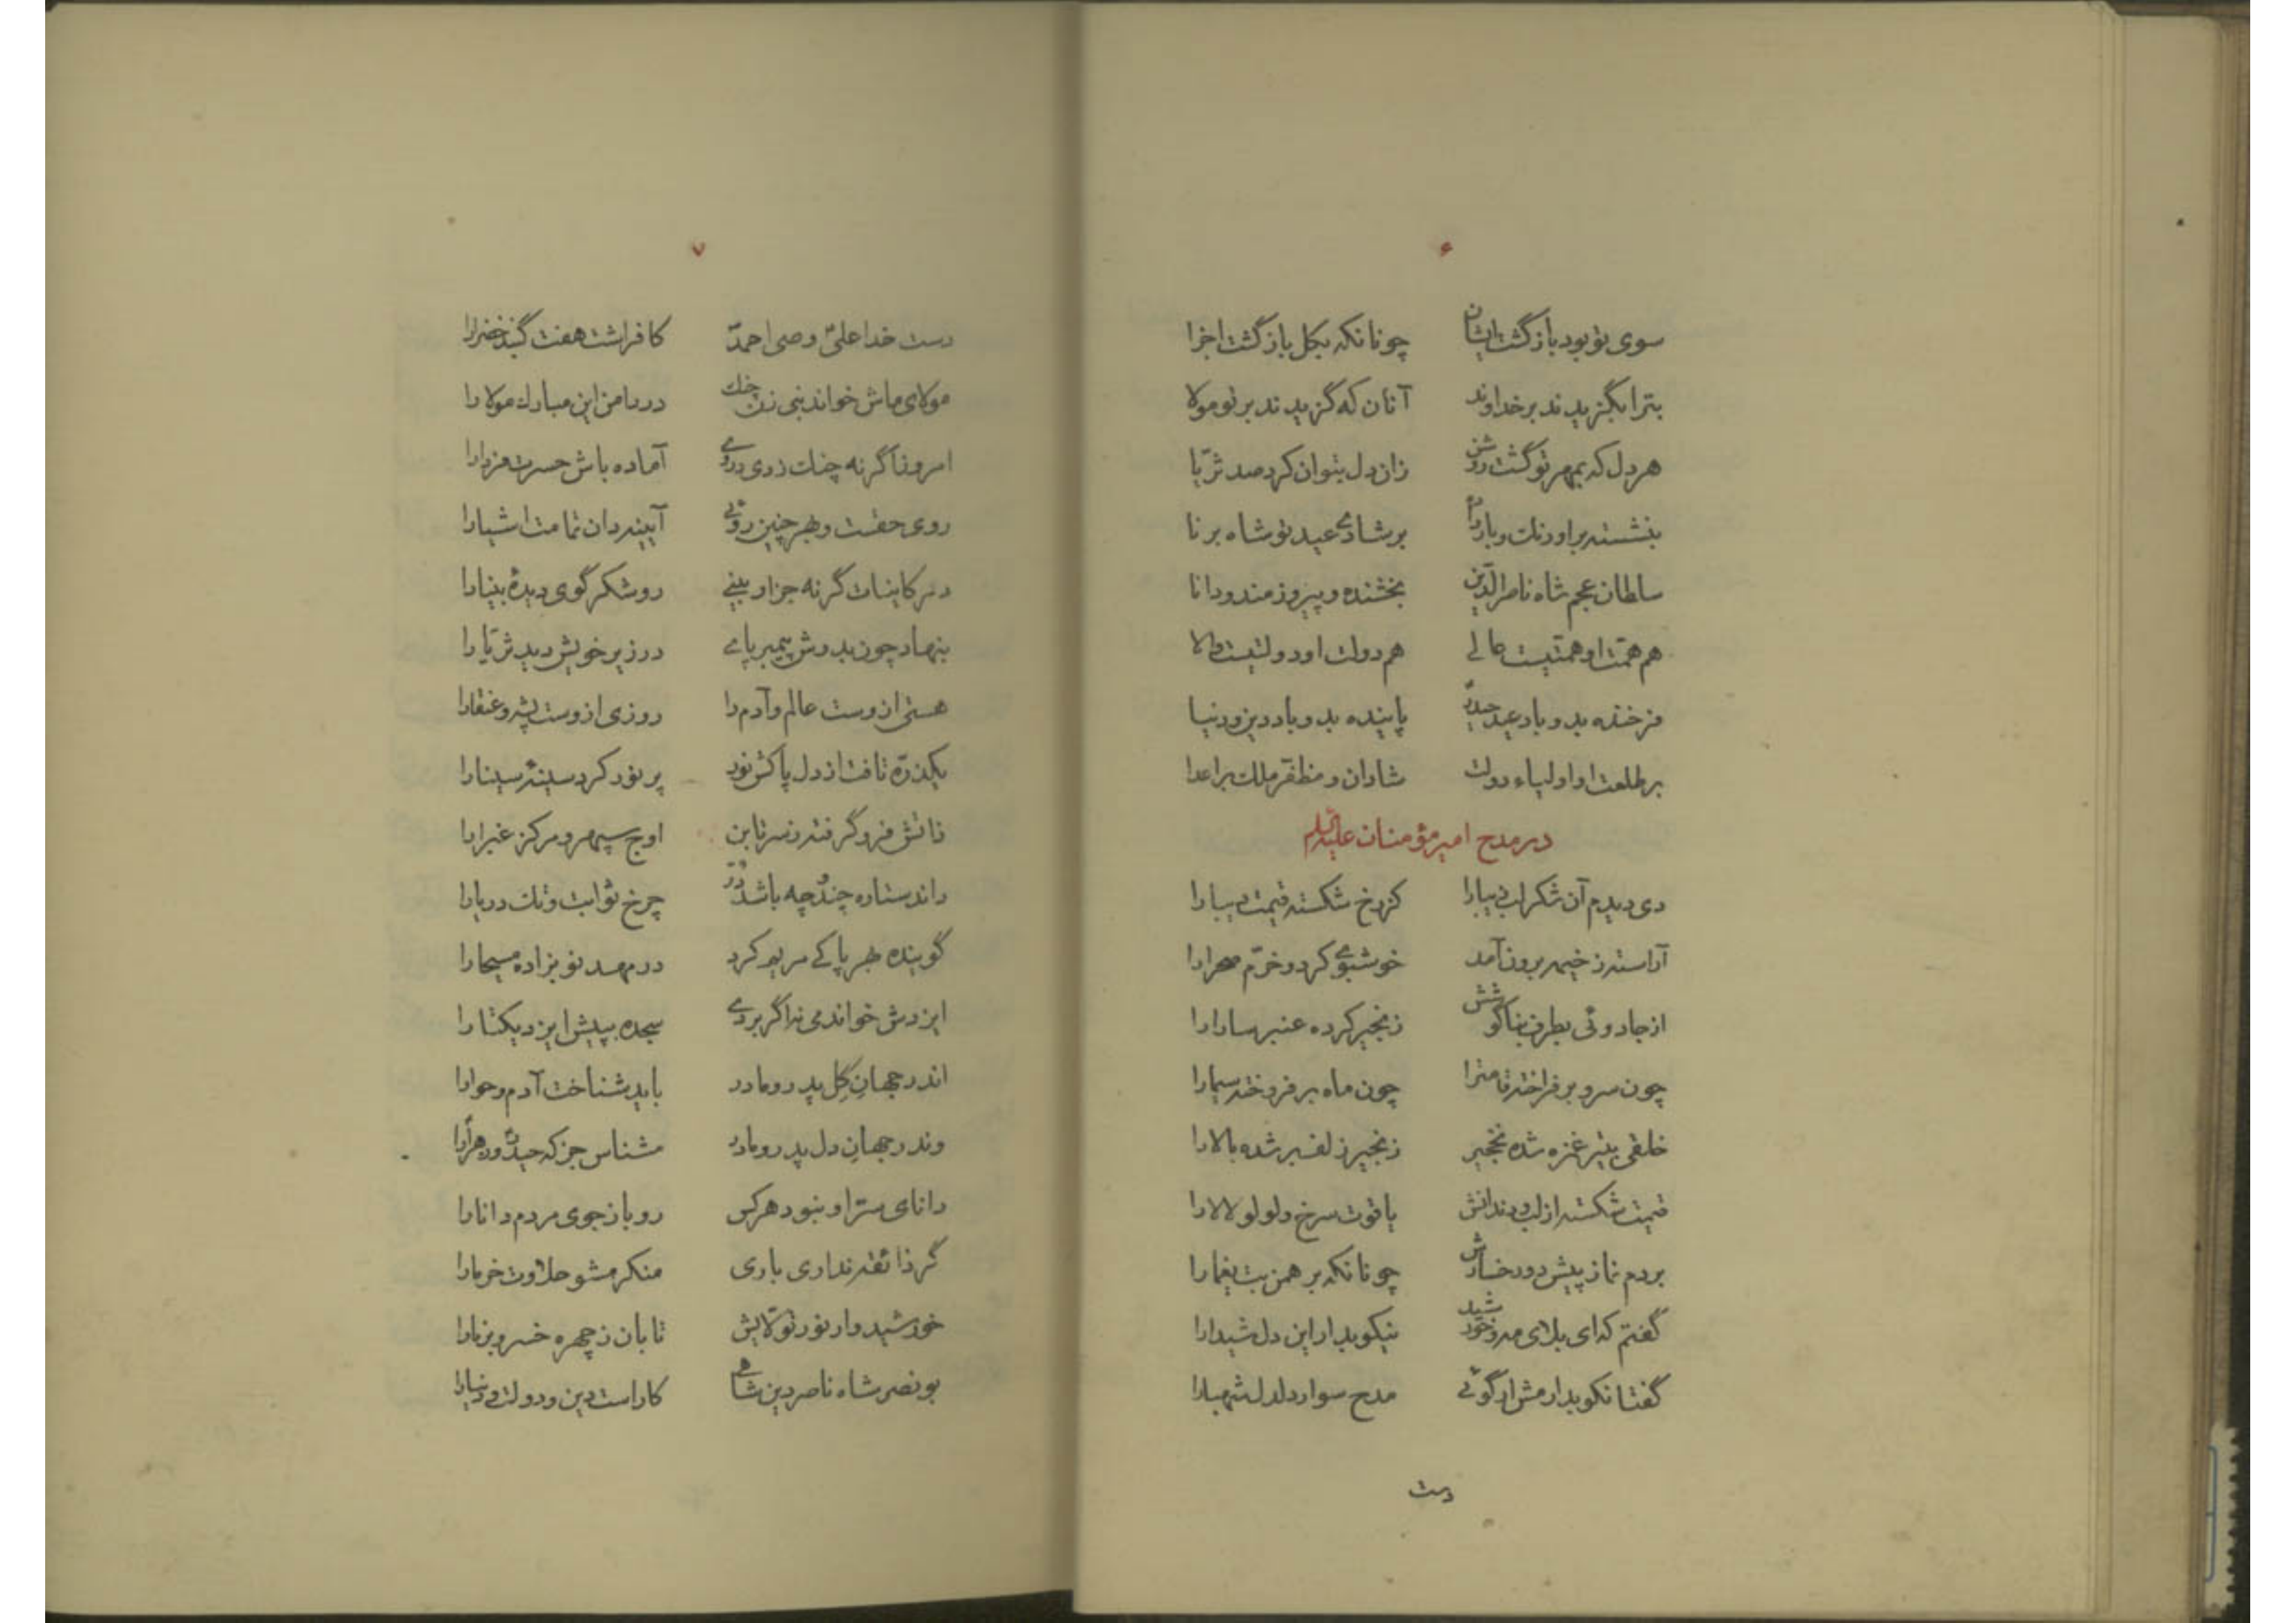 ۶
سوی تو بود بازگشت ایشان چونانکه بکل بازگشت اجزا
بترا بگزیدند بر خداوند آنان که گزیدند بر تو مولا
هر دل که بمهر تو گشت روشن زان دل بتوان کرد صد ثریّا
بنشسته بر اورنک و باردام بر شادی عید تو شاه برنا
سلطان عجم شاه ناصرالدّین بخشنده و پیروزمند و دانا
هم همّت او همّتیست عالی هم دولت او دولتیست والا
فرخنده بدو باد عید حیدر پاینده بدو باد دین و دنیا
بر طلعت او اولیاء دولت شادان و مظفّر ملک بر اعدا
در مدح امیر مؤمنان علیه السلام
دی دیدم آن شکر لب زیبا را کز رخ شکسته قیمت دیبا را
آراسته ز خیمه برون آمد خوشبوی کرد و خرّم صحرا را
از جادوئی بطرف بناگوشش زنجیر کرده عنبر سارا را
چون سرو بر فراخته قامترا چون ماه بر فروخته سیما را
خلقی بتیر غمزه شده نخجیر زنجیر زلف بر شده بالا را
قیمت شکسته از لب و دندانش یاقوت سرخ و لولو لالا را
بردم نماز پیش دو رخسارش چونانکه برهمن بت یغما را
گفتم که ای بلای مه و خورشید نیکو بدار این دل شیدا را
گفتا نکو بدارمش ار گوئی مدح سوار دلدل شهبا را
دست
۷
دست خدا علیّ وصی احمدّ کافراشت هفت گنبد خضرا را
مولای ماش خواند نبی زن چنک در دامن این مبارک مولا را
امروز اگر نه چنک زدی در وی آماده باش حسرت فردا را
روی حقست و بهر چنین روئی آیینه دان تمامت اشیا را
در کاینات گر نه جز او بینی روشنگر گوی دیدهٔ بینا را
بنهاد چون بدوش پیمبر پای در زیر خویش دید ثریّا را
هستی از وست عالم و آدم را روزی از وست پشه و عنقا را
یکذرّه تافت از دل پاکش نور پر نور کرد سینهٔ سینا را
ذاتش فرو گرفته ز سر تا بن اوج سپهر و مرکز غبرا را
داند ستاره چند و چه باشد دُر چرخ ثوابت و تک دریا را
گوینده بهر پاکی مریم کرد در مهد نو بزاده مسیحا را
ایزدش خواندمی نه اگر بردی سجده بپیش ایزد یکتا را
اندر جهانِ گِل پدر و مادر باید شناخت آدم و حوا را
وندر جهانِ دل پدر و مادر مشناس جز که حیدر و زهرا را
دانای سّر او نبود هر کس رو باز جوی مردم دانا را
گر ذائقه نداری باری منکر مشو حلاوت خرما را
خورشید وار نور تولّایش تابان ز چهره خسرو برنا را
بونصر شاه ناصر دین شاهی کاراست دین و دولت و دنیا را